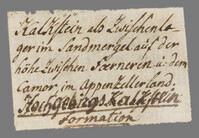 Kalkstein als Zwischenla-
ger im Sandmergel auf der
höhe zwischen Færneren u: dem
Camor, im Appenzellerland;
Hochgebirgs Kalkstein
formation